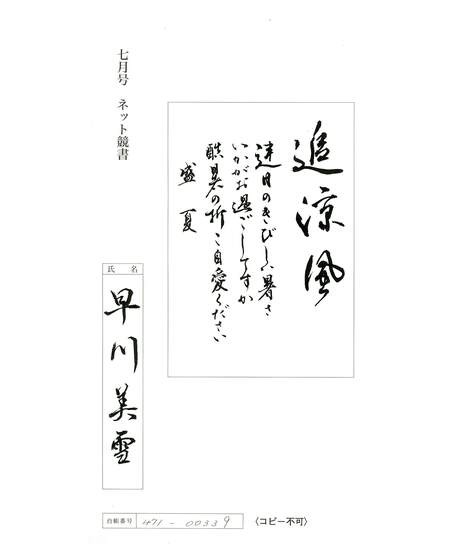 七月号 ネット競書
追涼風
連日のきびしい暑さ
いかがお過ごしですか
酷暑の折ご自愛ください
盛夏
氏名
早川美雪
台帳番号 471-00339
〈コピー不可〉